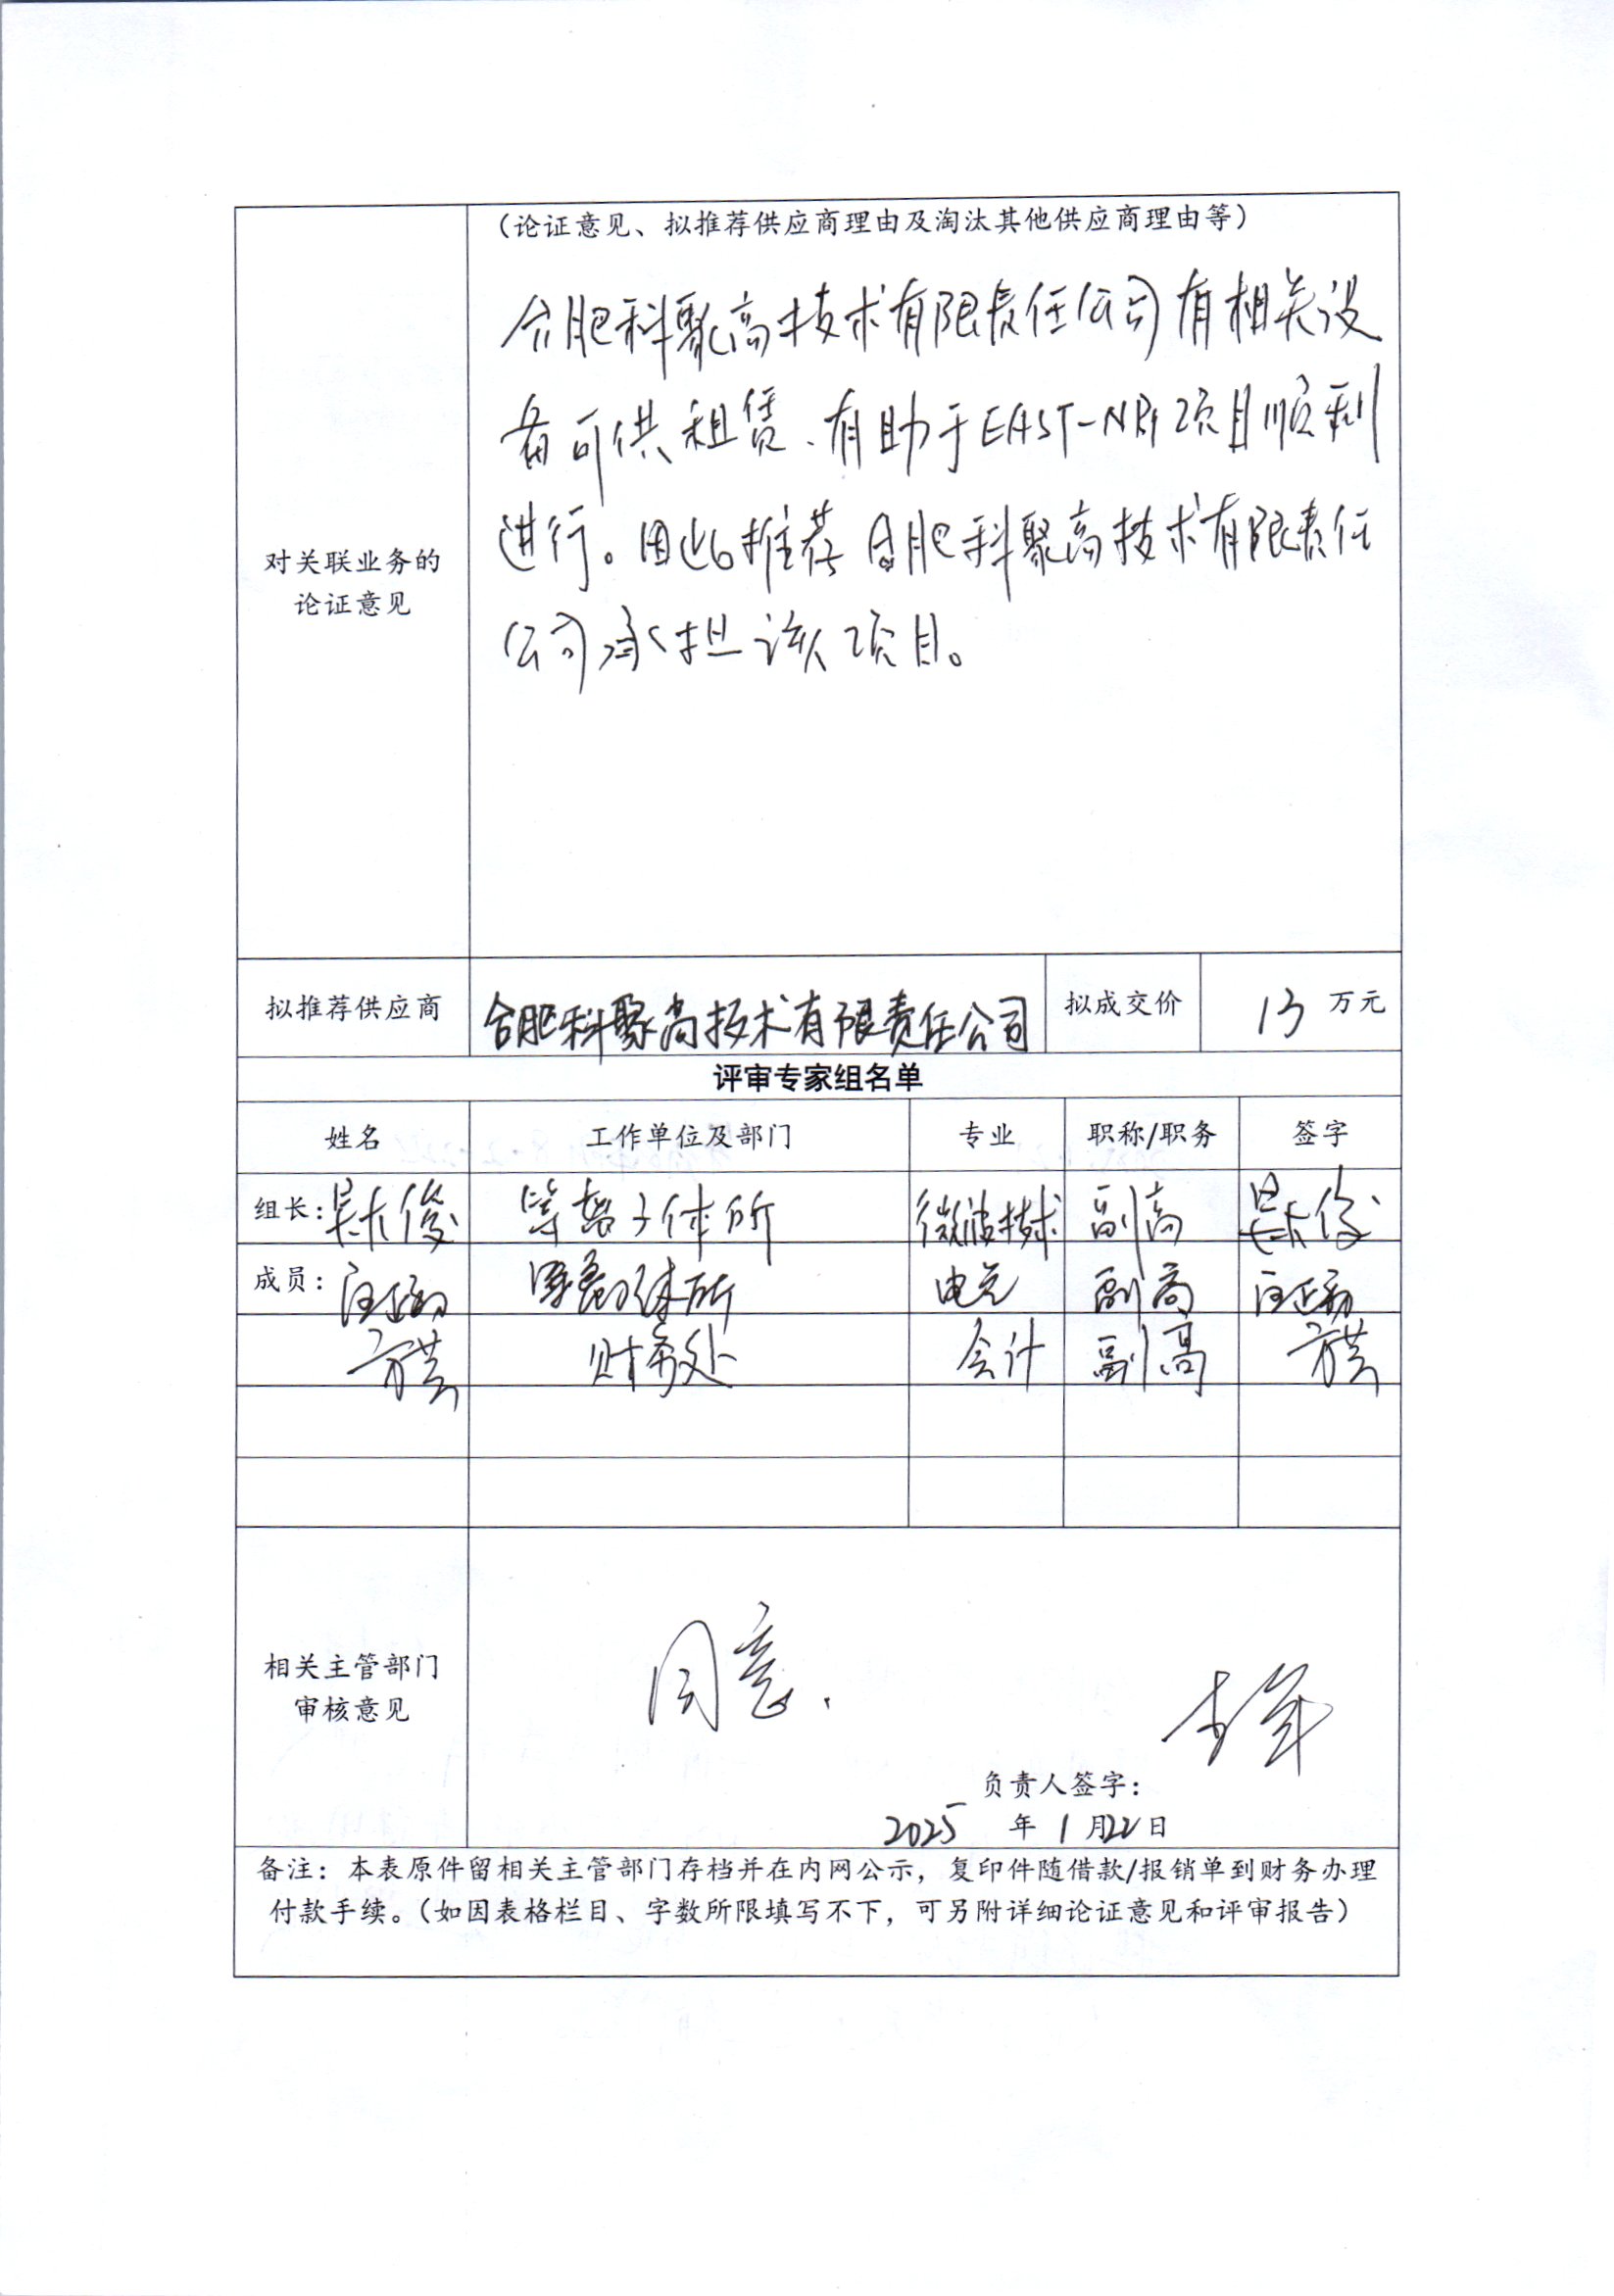 （论证意见、拟推荐供应商理由及淘汰其他供应商理由等）
合肥科聚高技术有限责任公司有相关设
备可供租赁、有助于EAST-NBI项目顺利
进行。因此推荐合肥科聚高技术有限责任
公司承担该项目。
对关联业务的
论证意见
拟推荐供应商 合肥科聚高技术有限责任公司 拟成交价 13 万元
评审专家组名单
姓名 工作单位及部门 专业 职称/职务 签字
组长： 等离子体所 微波技术 副高
成员： 等离子体所 副高
财务处 会计 副高
相关主管部门
审核意见
同意.
负责人签字：
2025 年 1 月22日
备注：本表原件留相关主管部门存档并在内网公示，复印件随借款/报销单到财务办理
付款手续。（如因表格栏目、字数所限填写不下，可另附详细论证意见和评审报告）